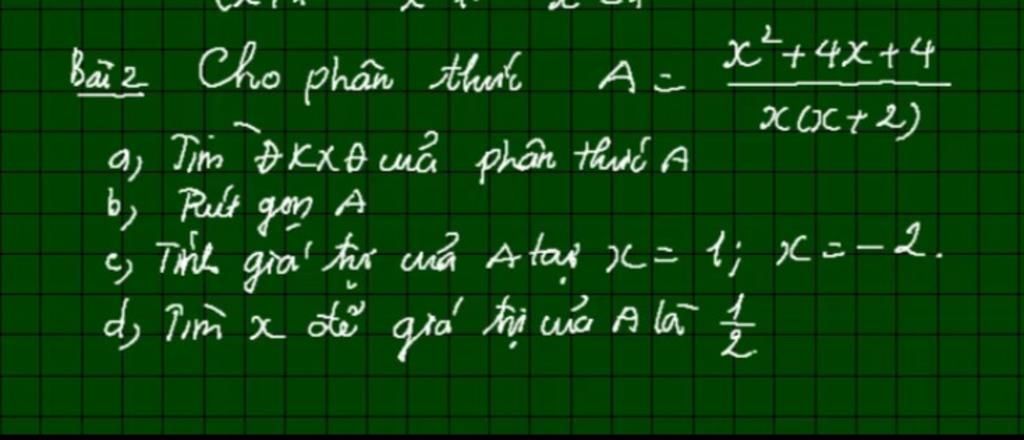 Bài 2 Cho phân thức A = \frac{x^2+4x+4}{x(x+2)}
a, Tìm ĐKXĐ của phân thức A
b, Rút gọn A
c, Tính giá trị của A tại x = 1; x = -2.
d, Tìm x để giá trị của A là \frac{1}{2}